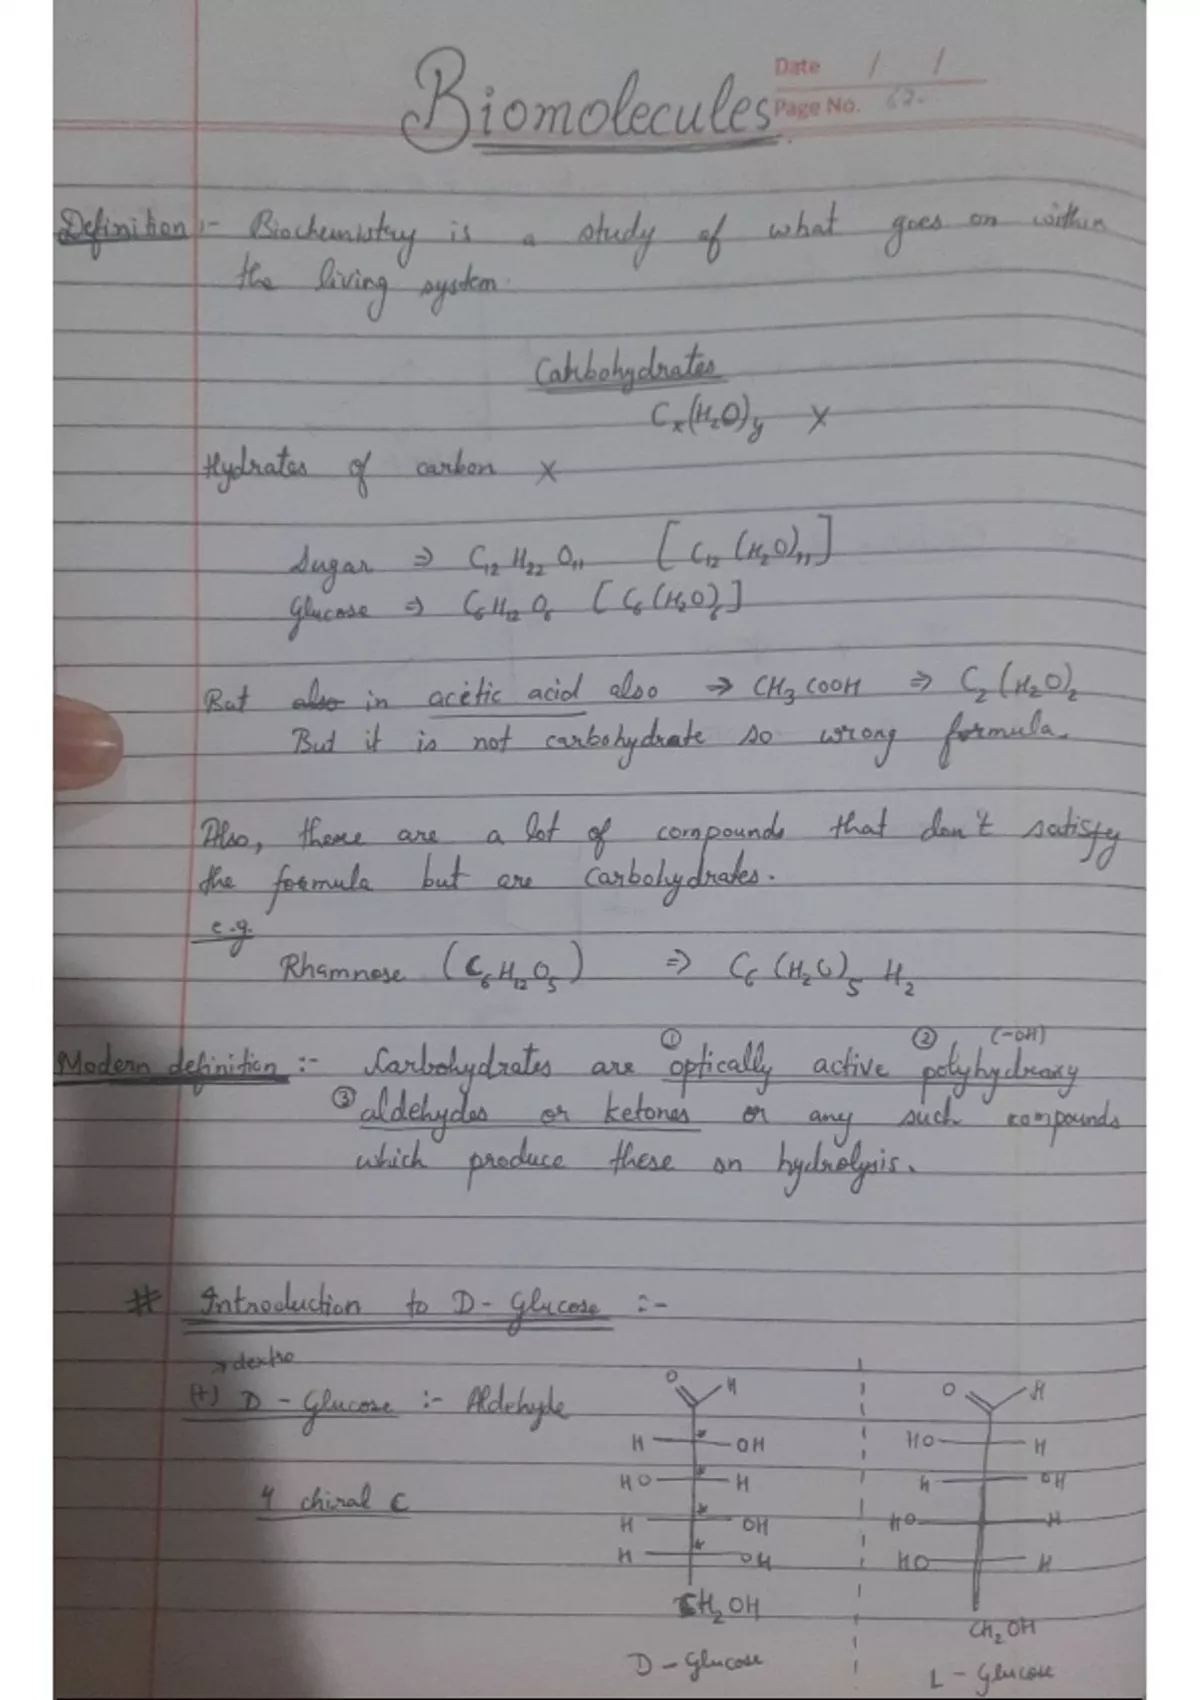 Biomolecules
Date / /
Page No. 62.
Definition :- Biochemistry is a study of what goes on within
the living system.
Carbohydrates
Cx(H2O)y X
Hydrates of carbon X
Sugar ⇒ C12 H22 O11 [C12 (H2O)11]
Glucose ⇒ C6H12O6 [C6(H2O)6]
But also in acetic acid also → CH3COOH ⇒ C2(H2O)2
But it is not carbohydrate so wrong formula.
Also, there are a lot of compounds that don't satisfy
the formula but are carbohydrates.
e.g.
Rhamnose (C6H12O5) ⇒ C6(H2O)5 H2
① ② (-OH)
Modern definition :- Carbohydrates are optically active polyhydroxy
③ aldehydes or ketones or any such compounds
which produce these on hydrolysis.
# Introduction to D-Glucose :-
→ dextro
(+) D-Glucose :- Aldehyde
4 chiral C
O H
H * OH
HO * H
H * OH
H * OH
CH2OH
D-Glucose
O H
HO H
H OH
HO H
HO H
CH2OH
L-Glucose